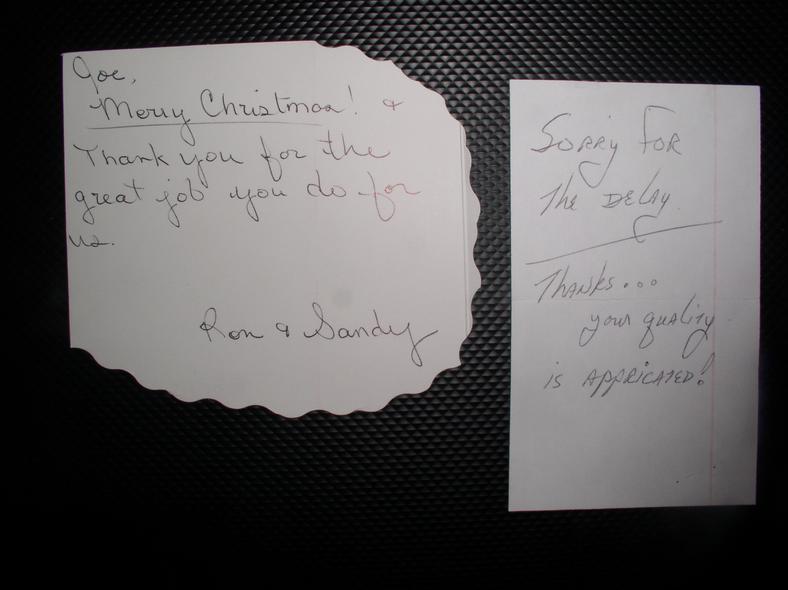 Joe,
Merry Christmas! &
Thank you for the
great job you do for
us.
Ron & Sandy
Sorry For
The DELAY
THANKS...
your quality
is APPRICATED!